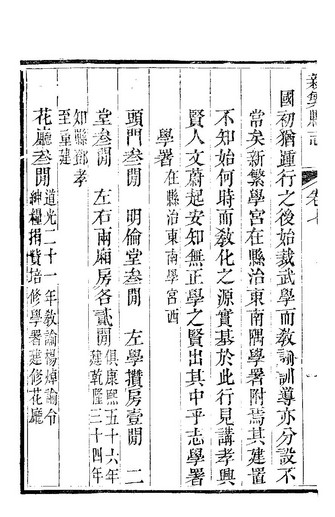 國初猶踵行之後始裁武學而敎諭訓導亦分設不
常矣新繁學宮在縣治東南隅學署附焉其建置
不知始何時而敎化之源實基於此行見講孝興
賢人文蔚起安知無正學之賢出其中乎志學署
學署在縣治東南學宮西
頭門叁間 明倫堂叁間 左學攢房壹間 二
堂叁間 左右兩廂房各貳間 俱康熙五十六年
建乾隆三十四年
知縣鄧孝
至重建
花廳叁間 道光二十一年敎諭楊焯諭令
紳糧捐貲培修學署建修花廳